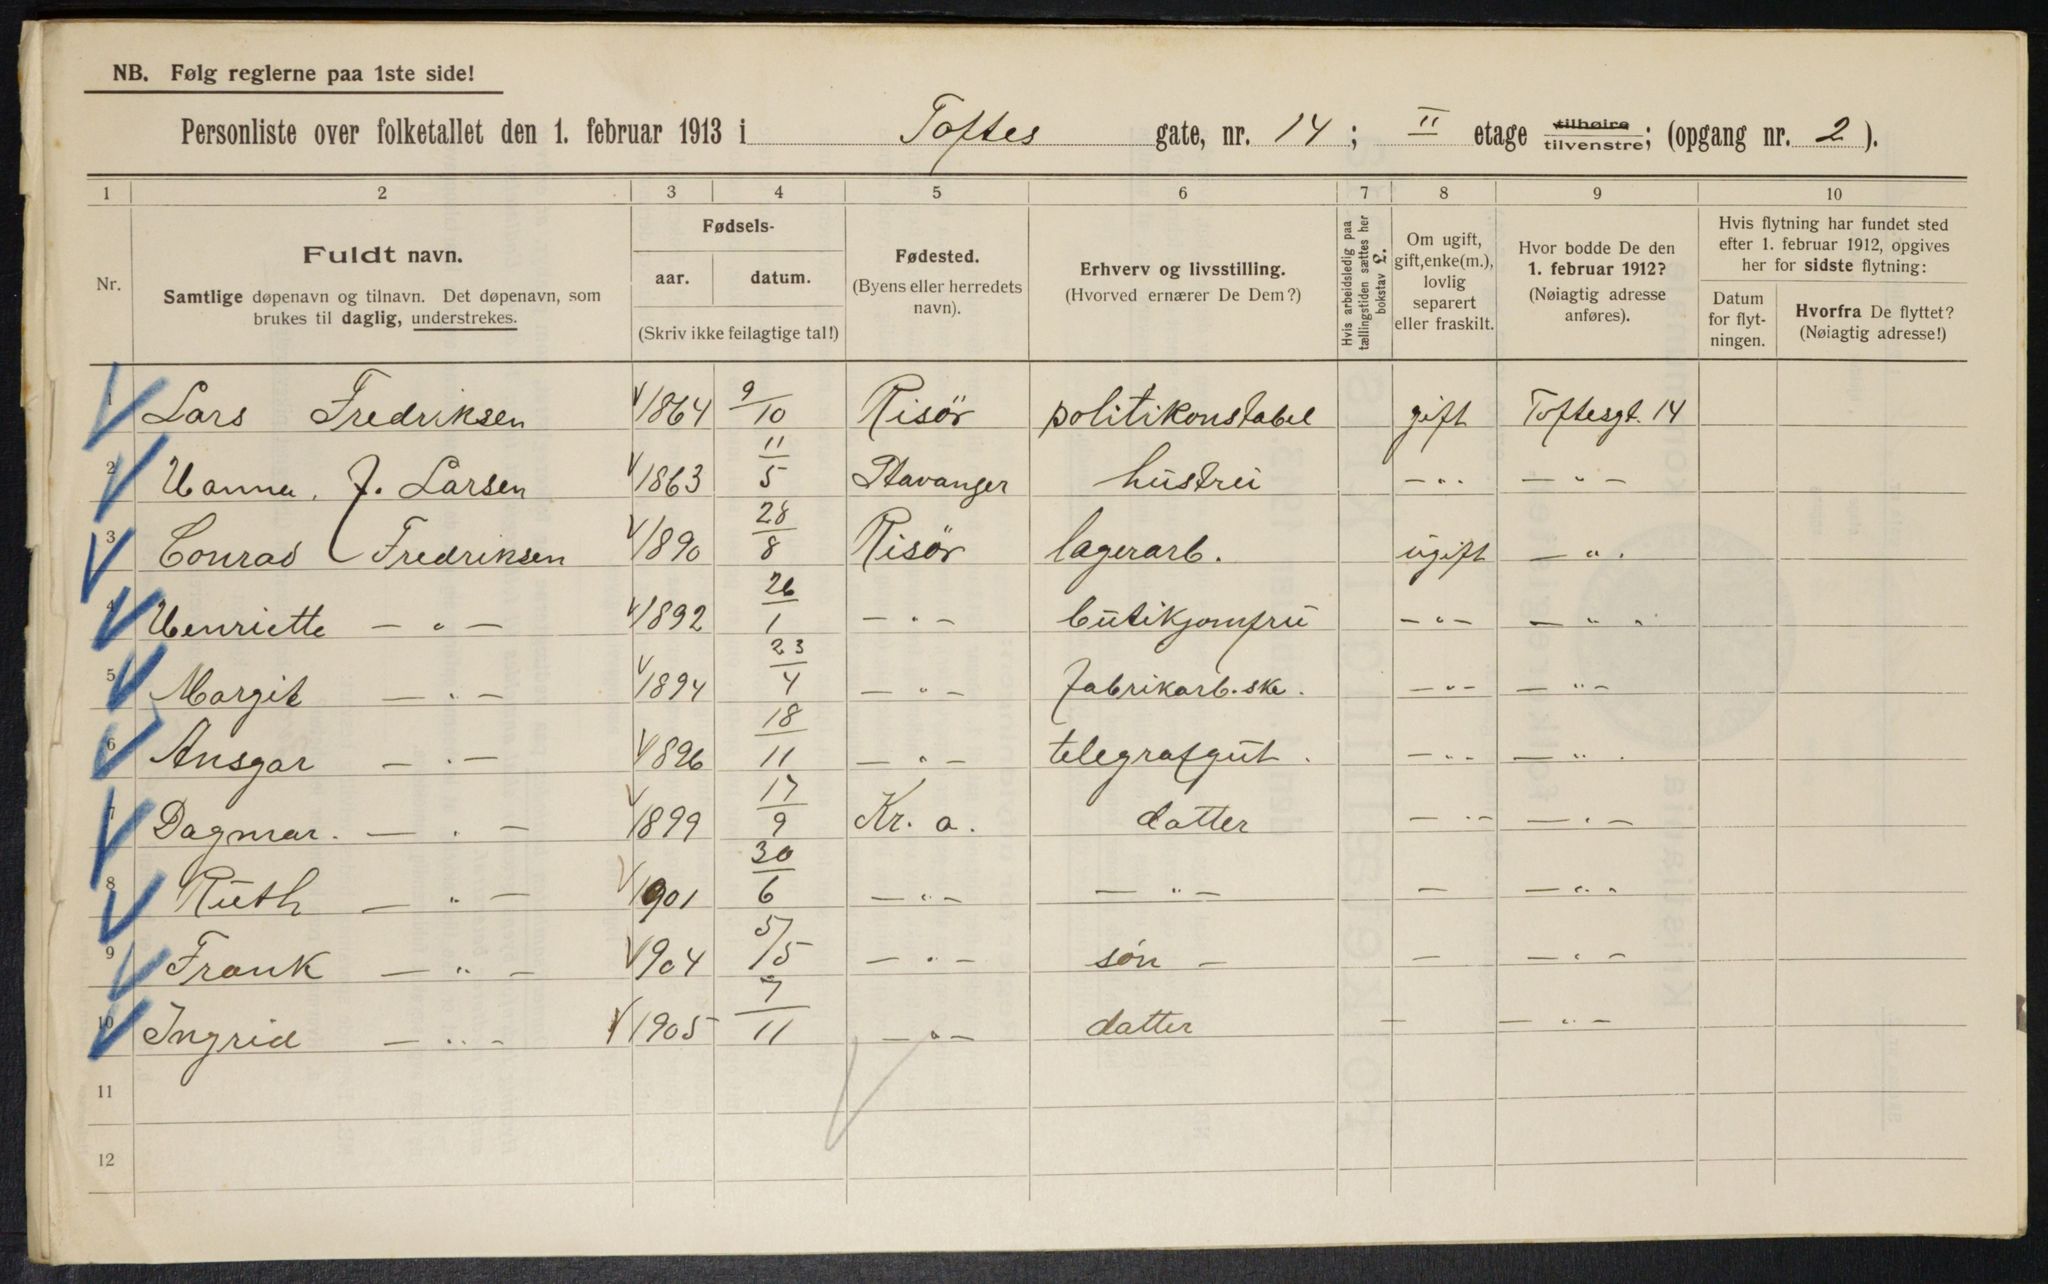 NB. Følg reglerne paa 1ste side!
Personliste over folketallet den 1. februar 1913 i Toftes gate, nr. 14; II etage tilhøire tilvenstre; (opgang nr. 2).
1 2 3 4 5 6 7 8 9 10
Nr.
Fuldt navn.
Samtlige døpenavn og tilnavn. Det døpenavn, som
brukes til daglig, understrekes.
Fødsels-
aar. datum.
(Skriv ikke feilagtige tal!)
Fødested.
(Byens eller herredets
navn).
Erhverv og livsstilling.
(Hvorved ernærer De Dem?)
Hvis arbeidsledig paa
tællingstiden sættes her
bokstav £.
Om ugift,
gift, enke(m.),
lovlig
separert
eller fraskilt.
Hvor bodde De den
1. februar 1912?
(Nøiagtig adresse
anføres).
Hvis flytning har fundet sted
efter 1. februar 1912, opgives
her for sidste flytning:
Datum
for flyt-
ningen.
Hvorfra De flyttet?
(Nøiagtig adresse!)
1 Lars Fredriksen 1864 9/10 Risör politikonstabel gift Toftesgt. 14
2 Hanna. J. Larsen 1863 11/5 Stavanger hustru — " — — " —
3 Conrad Fredriksen 1890 28/8 Risör lagerarb. ugift — " .
4 Henriette — " — 1892 26/1 — " — butikjomfru — " — — " "
5 Margit — " — 1894 23/4 — " — fabrikarb.ske. — " — — " —
6 Ansgar — " — 1896 18/11 — " — telegrafgut. — " — — " .
7 Dagmar. — " — 1899 17/9 Kr. a. datter — " — — " —
8 Ruth — " — 1901 30/6 — " — — " — — — " "
9 Frank — " — 1904 5/5 — " — søn — — — " —
10 Ingrid — " — 1905 7/11 — " — datter — — " —
11
12